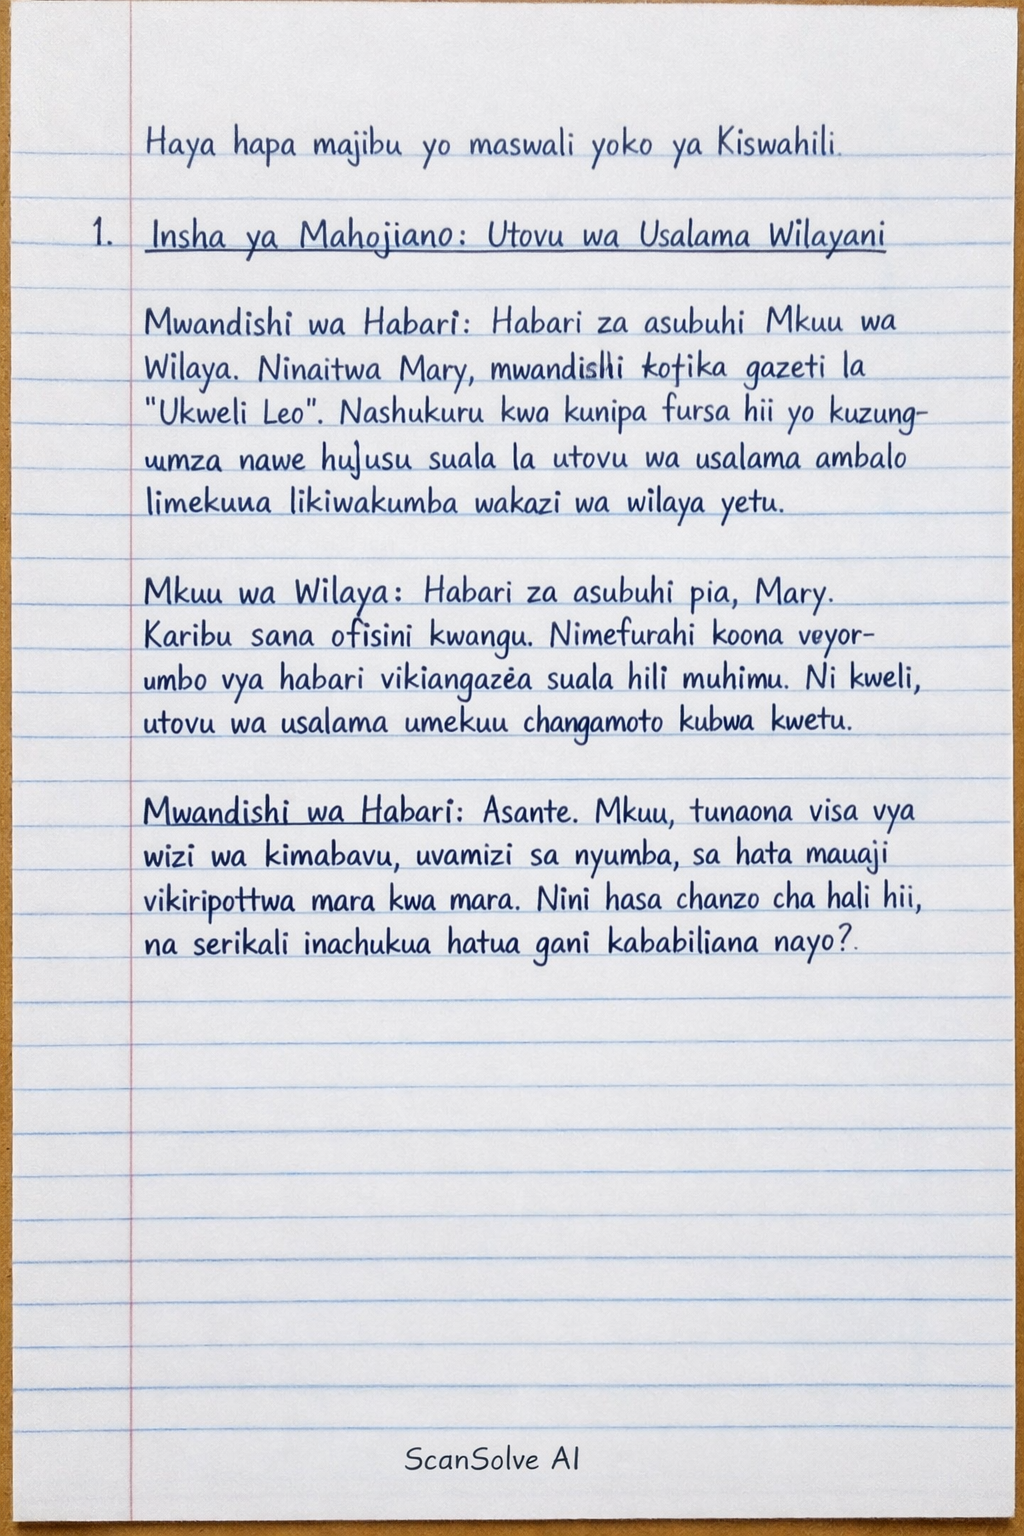 Haya hapa majibu yo maswali yoko ya Kiswahili.
1. Insha ya Mahojiano: Utovu wa Usalama Wilayani
Mwandishi wa Habari: Habari za asubuhi Mkuu wa
Wilaya. Ninaitwa Mary, mwandishi kotika gazeti la
"Ukweli Leo". Nashukuru kwa kunipa fursa hii yo kuzung-
umza nawe hujusu suala la utovu wa usalama ambalo
limekuua likiwakumba wakazi wa wilaya yetu.
Mkuu wa Wilaya: Habari za asubuhi pia, Mary.
Karibu sana ofisini kwangu. Nimefurahi koona veyor-
umbo vya habari vikiangazëa suala hili muhimu. Ni kweli,
utovu wa usalama umekuu changamoto kubwa kwetu.
Mwandishi wa Habari: Asante. Mkuu, tunaona visa vya
wizi wa kimabavu, uvamizi sa nyumba, sa hata mauaji
vikiripottwa mara kwa mara. Nini hasa chanzo cha hali hii,
na serikali inachukua hatua gani kababiliana nayo?.
ScanSolve AI